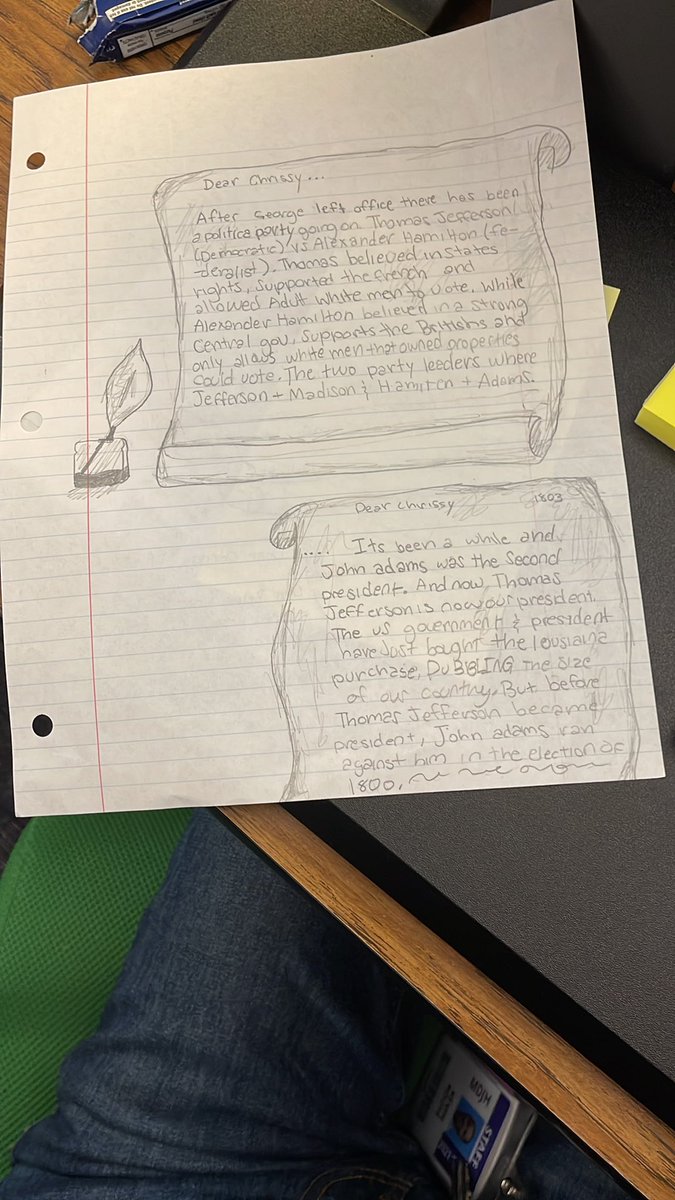 Dear Chrissy...
After George left office there has been
a politica party going on. Thomas Jefferson
(Democratic) VS Alexander Hamilton (fe-
-deralist). Thomas believed in states
rights, supported the french and
allowed Adult white men to vote. While
Alexander Hamilton believed in a strong
Central gov, supports the Britishs and
only allows white men that owned properties
could vote. The two party leeders where
Jefferson + Madison & Hamilton + Adams.
Dear Chrissy 1803
.... Its been a while and
John adams was the second
president. And now Thomas
Jefferson is now our president.
The us government & president
have Just bought the lousiana
purchase, DUBBLING the size
of our country. But before
Thomas Jefferson became
president, John adams ran
against him in the election of
1800.
MDJH
STAFF